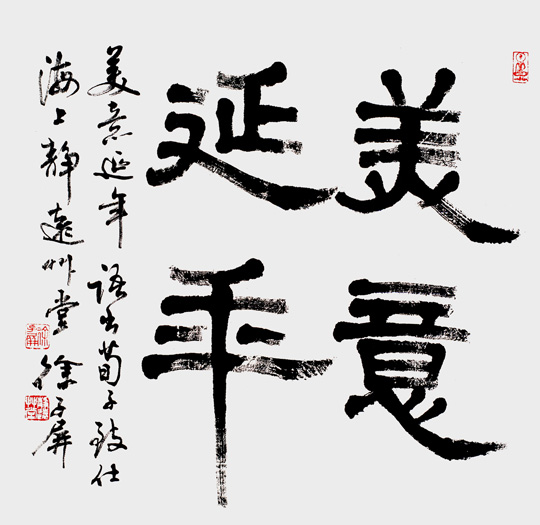 美意
延年
美意延年 语出荀子致仕
海上静遠艸堂 徐子屏